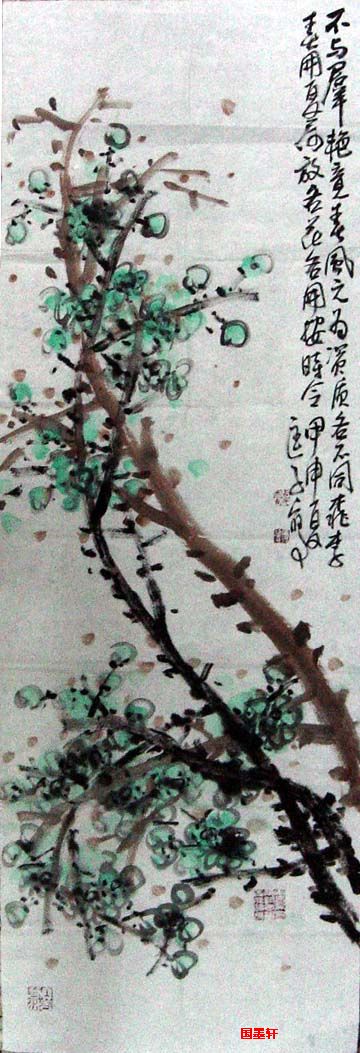 不与群艳竞春风元为资质各不同桃李
春开夏荷放各花各开按时令甲申夏
国墨轩